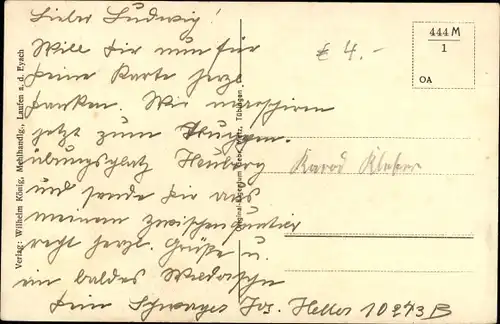 Lieber Ludwig!
Will dir nun für
deine Karte herzl.
danken. Wir marschieren
jetzt zum Truppen-
übungsplatz Heuberg
und sende dir aus
meinem Zwischenquartier
recht herzl. Grüße u.
ein baldes Wiedersehn
dein Schwager Jos. Heller 10273B
€ 4.-
444 M
1
OA
Verlag: Wilhelm König, Mehlhandlg., Laufen a. d. Eyach
Metz, Tübingen